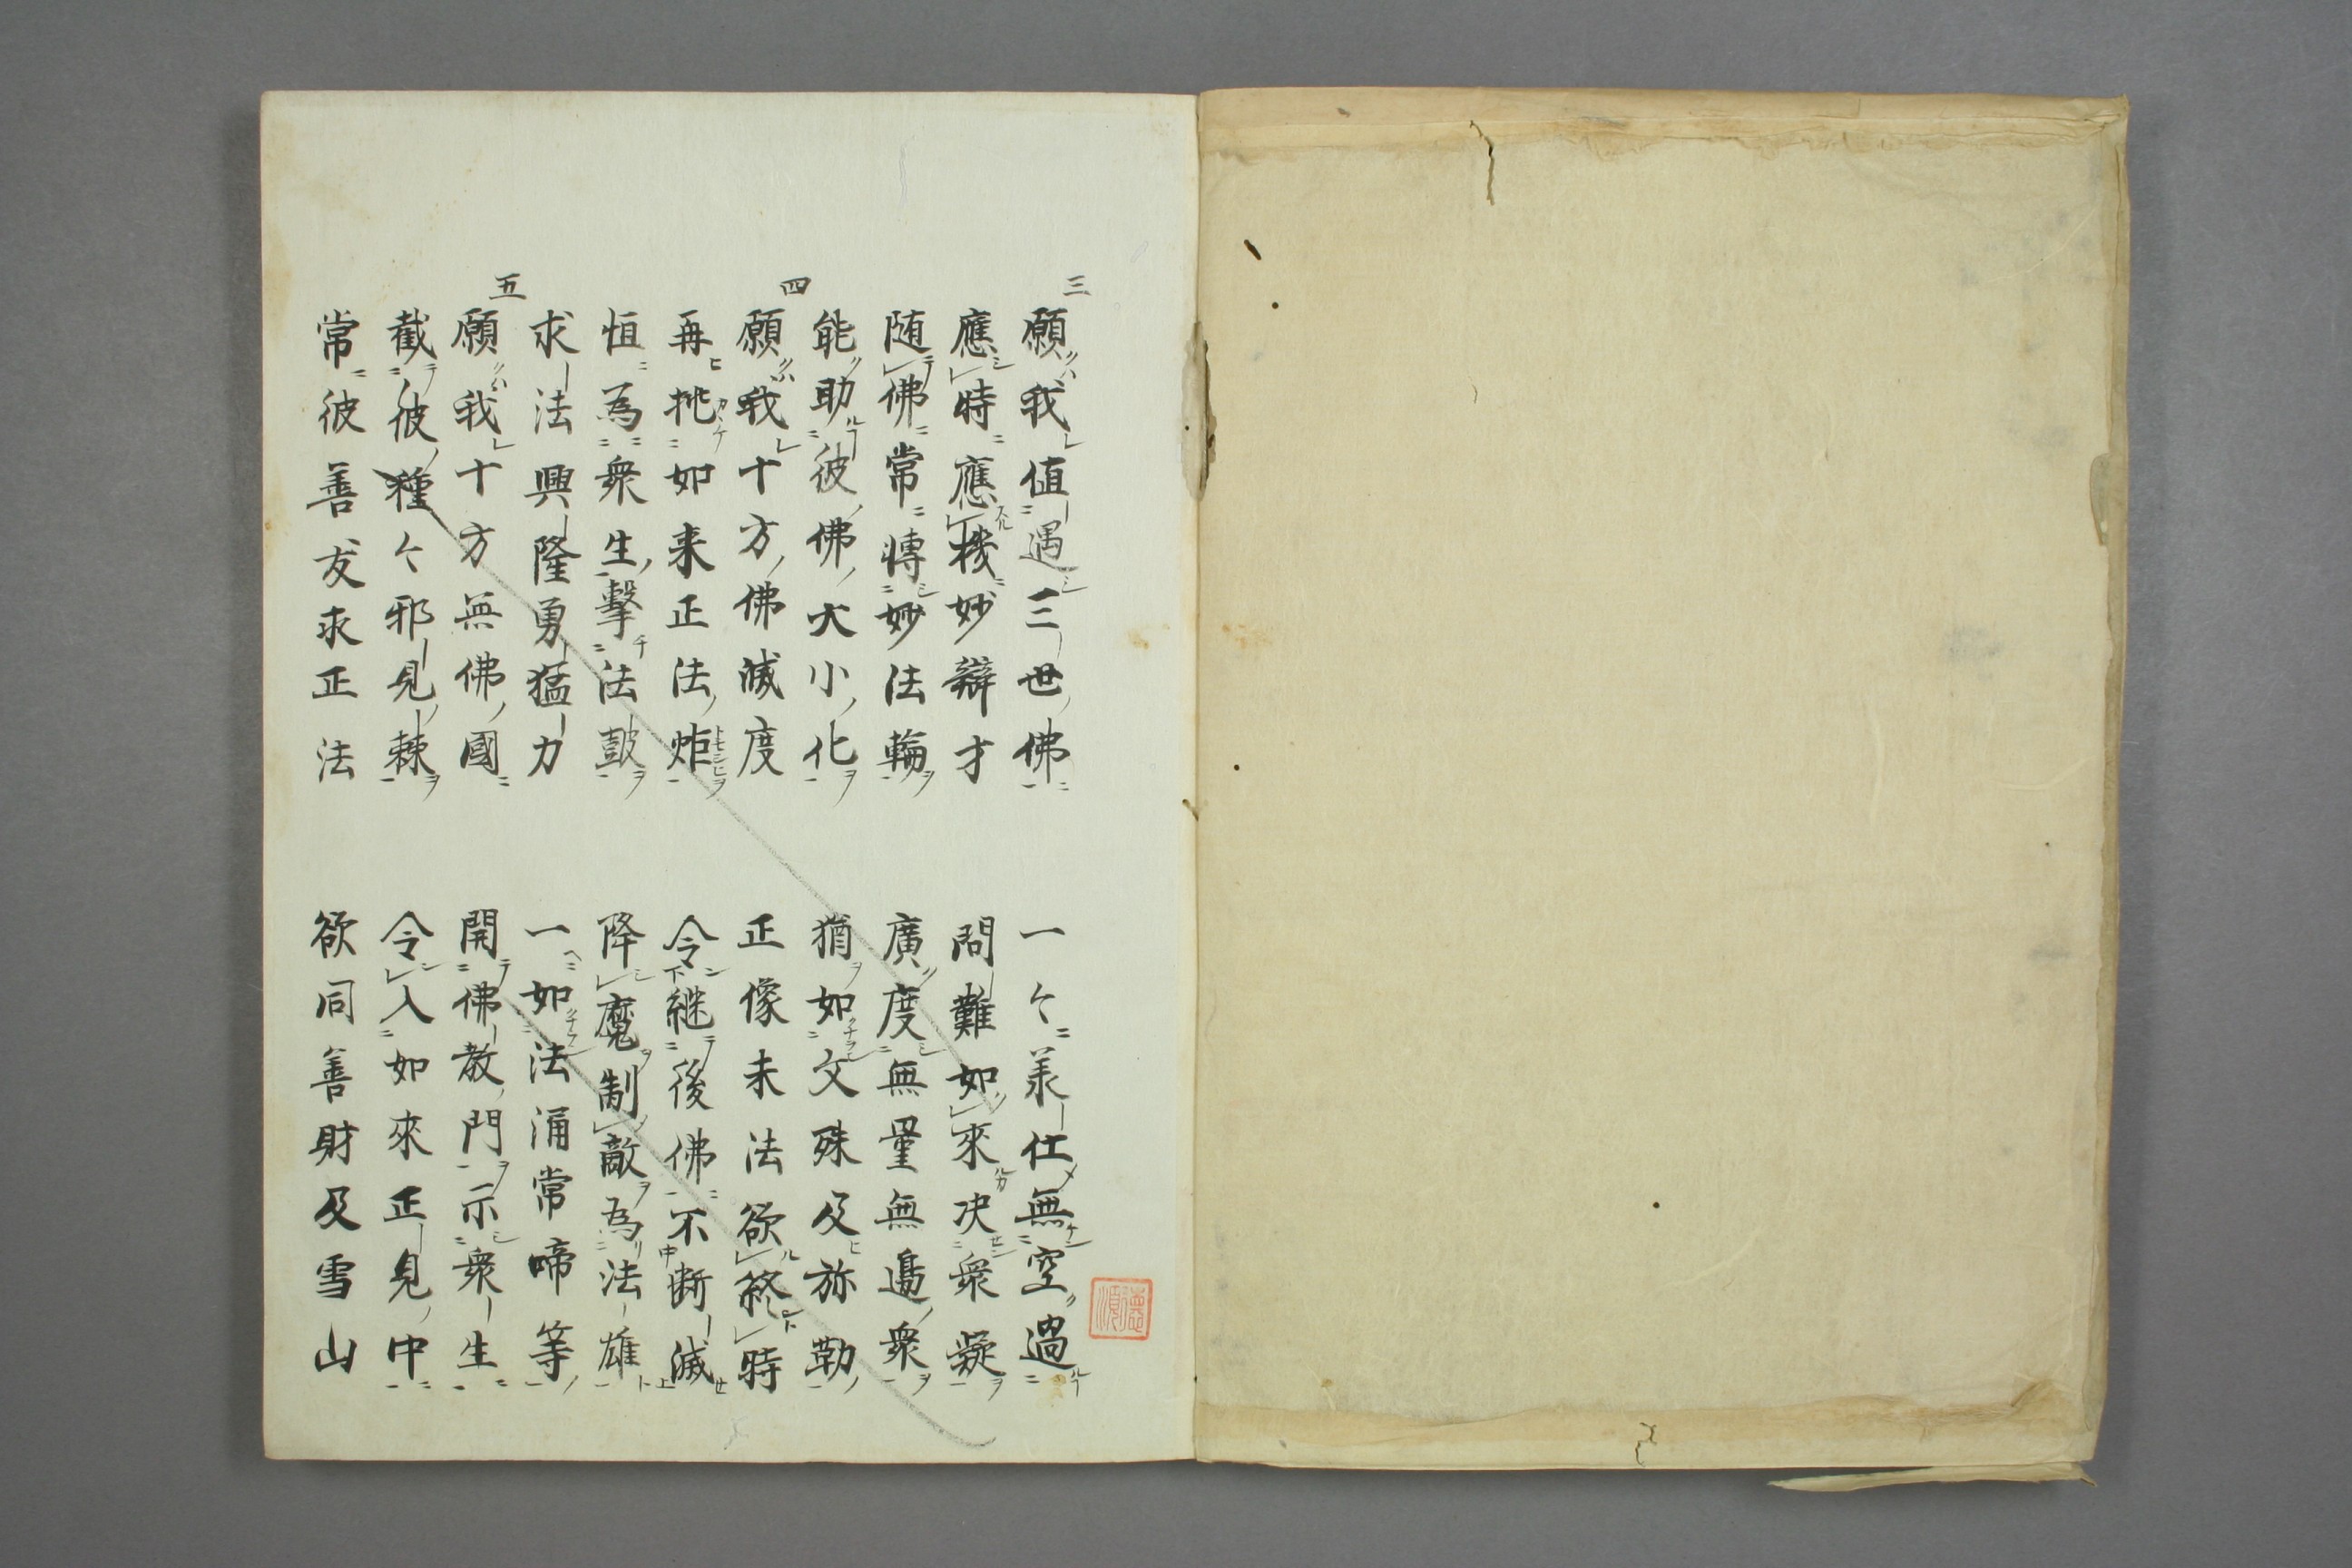 三
願我値遇三世佛 一々羕仕無空過
應時應機妙辯才 問難如來决衆凝
随佛常轉妙法輪 廣度無量無邊衆
能助彼佛大小化 猶如文殊及弥勒
四
願我十方佛滅度 正像末法欲終時
再挑如来正法炬 令継後佛不断滅
恒為衆生擊法鼓 降魔制敵為法雄
求法興隆勇猛力 一如法涌常啼等
五
願我十方無佛國 開佛教門示衆生
截彼種々邪見棘 令入如來正見中
常彼善友求正法 欲同善財及雪山